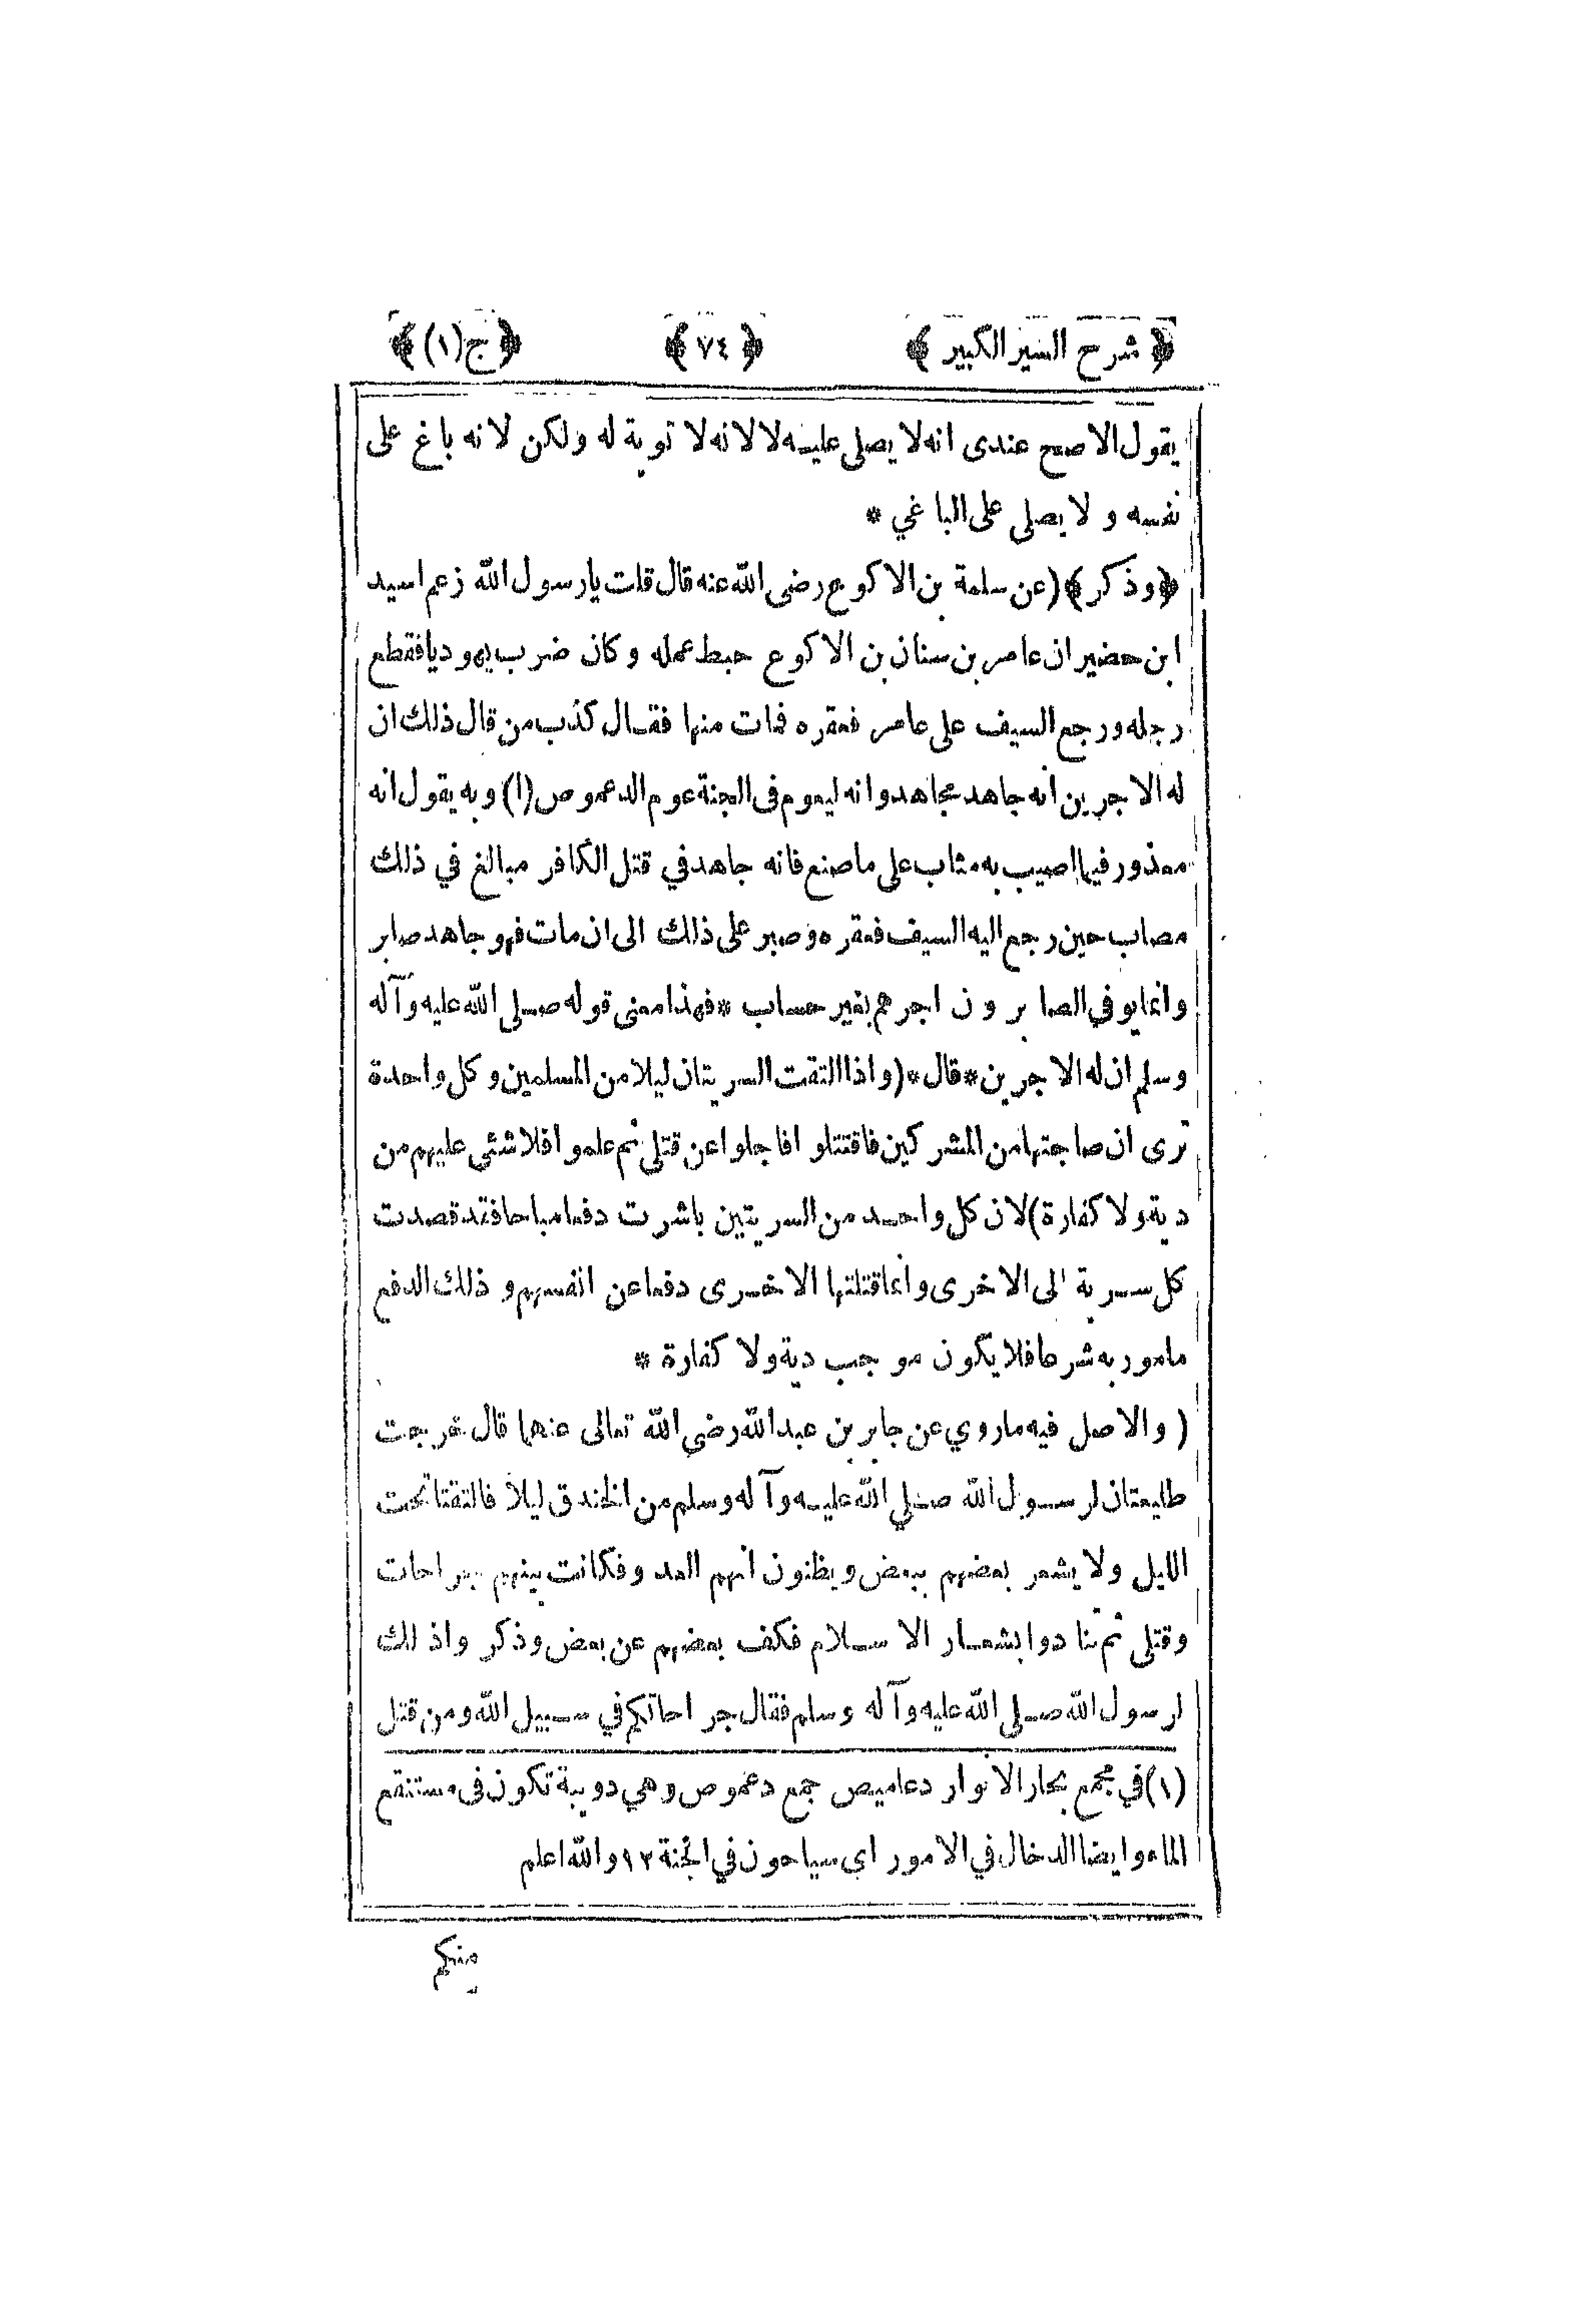 ﴿ شرح السير الكبير ﴾ ﴿ ٧٤ ﴾ ﴿ ج (١) ﴾
يقول الاصح عندى انه لا يصلى عليه لا لانه لا توبة له ولكن لانه باغ على
نفسه و لا يصلى على الباغي *
﴿ وذكر ﴾ (عن سلمة بن الاكوع رضى الله عنه قال قلت يا رسول الله زعم اسيد
ابن حضير ان عامر بن سنان بن الاكوع حبط عمله وكان ضرب يهوديا فقطع
رجله ورجع السيف على عامر فعقره فمات منها فقال كذب من قال ذلك ان
له الاجرين انه جاهد مجاهد وانه ليعوم فى الجنة عوم الدعموص (١) وبه يقول انه
معذور فيما اصيب به مثاب على ما صنع فانه جاهد في قتل الكافر مبالغ في ذلك
مصاب حين رجع اليه السيف فعقره وصبر على ذلك الى ان مات فهو جاهد صابر
وانما يوفي الصابرون اجرهم بغير حساب * فهذا معنى قوله صلى الله عليه وآله
وسلم ان له الاجرين * قال * (واذا التقت السريتان ليلا من المسلمين وكل واحدة
ترى ان صاحبتها من المشركين فاقتتلوا فاجلوا عن قتلى ثم علموا فلا شئى عليهم من
دية ولا كفارة) لان كل واحد من السريتين باشرت دفعا مباحا فقد قصدت
كل سرية الى الاخرى وانما قتلتها الاخرى دفعا عن انفسهم و ذلك الدفع
مامور به شرعا فلا يكون موجب دية ولا كفارة *
( والاصل فيه ماروي عن جابر بن عبدالله رضي الله تعالى عنهما قال خرجت
طليعتان لرسول الله صلي الله عليه وآله وسلم من الخندق ليلا فالتقتا تحت
الليل ولا يشعر بعضهم ببعض ويظنون انهم العدو فكانت بينهم جراحات
وقتلى ثم تنادوا بشعار الاسلام فكف بعضهم عن بعض وذكر واذلك
لرسول الله صلى الله عليه وآله وسلم فقال جراحاتكم في سبيل الله ومن قتل
(١) في مجمع بحار الانوار دعاميص جمع دعموص وهي دويبة تكون فى مستنقع
الماء وايضا الدخال في الامور اي سياحون في الجنة ١٢ والله اعلم
منكم